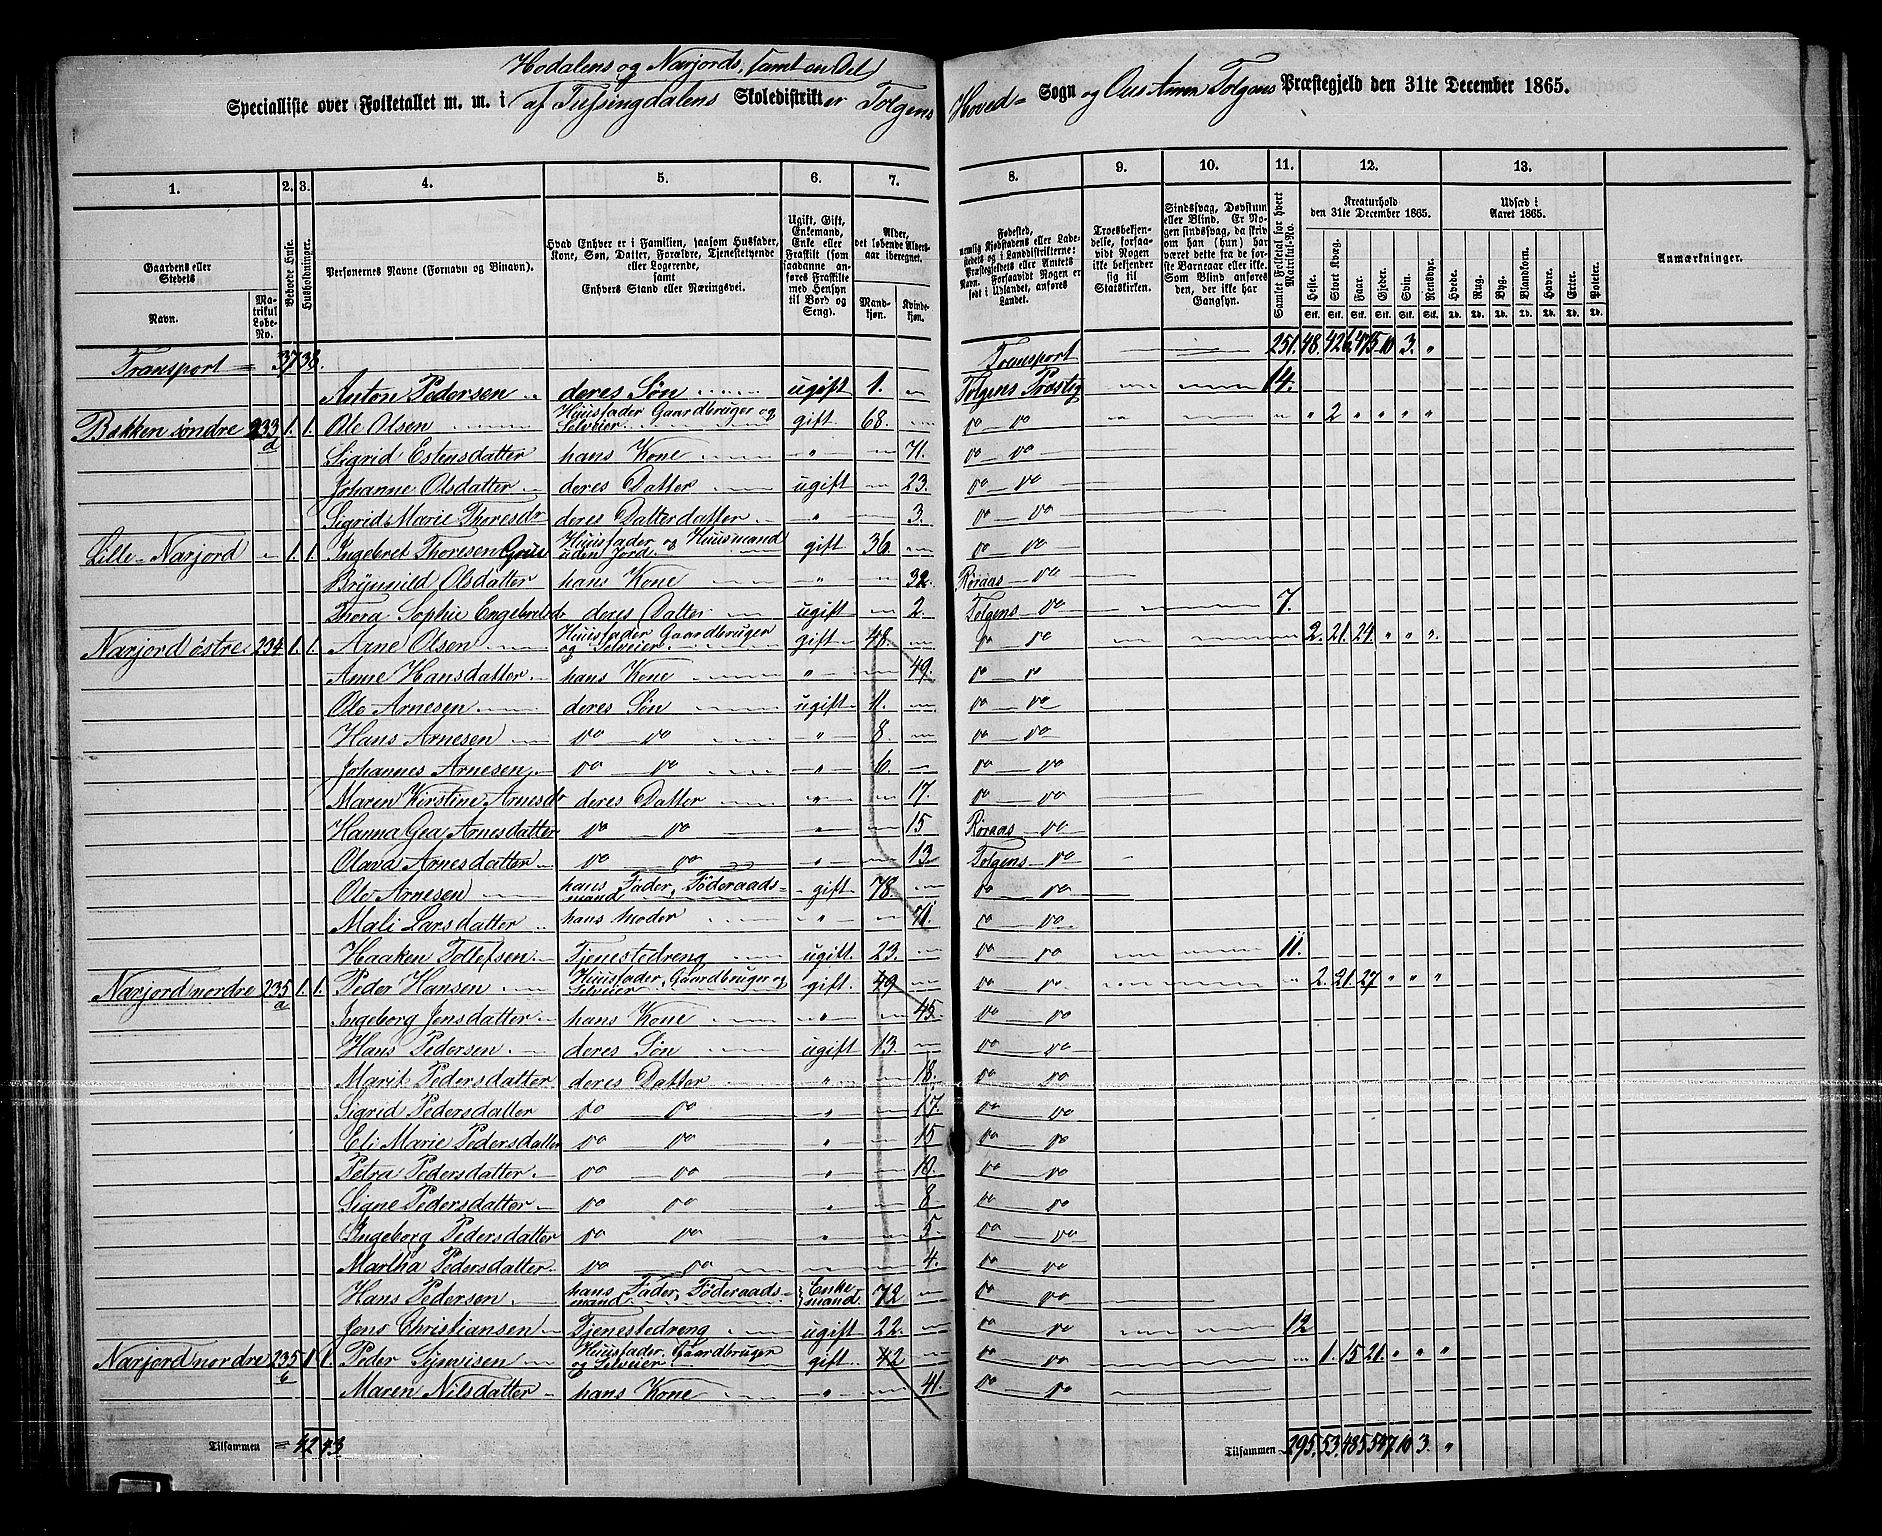 Hodalens og Narjords, samt en Del
Specialliste over Folketallet m. m. i af Tufsingdalens Skoledistrikt er Tolgens Hoved- Sogn og Tolgens Præstegjeld den 31te December 1865.
1. 2. 3. 4. 5. 6. 7. 8. 9. 10. 11. 12. 13.
Gaardens eller Stedets
Navn.
Matrikul Løbe-No.
Beboede Huse.
Husholdninger.
Personernes Navne (Fornavn og Binavn).
Hvad Enhver er i Familien, saasom Husfader, Kone, Søn, Datter, Forældre, Tjenestetyende eller Logerende, samt Enhvers Stand eller Næringsvei.
Ugift, Gift, Enkemand, Enke eller Fraskilt (som saadanne anføres Fraskilte med Hensyn til Bord og Seng).
Alder, det løbende Aldersaar iberegnet.
Mandkjøn.
Kvindekjøn.
Fødested, nemlig Kjøbstadens eller Ladestedets og i Landdistrikterne: Præstegjeldets eller Amtets Navn. Forsaavidt Nogen er født i Udlandet, anføres Landet.
Troesbekjendelse, forsaavidt Nogen ikke bekjender sig til Statskirken.
Sindssvag, Døvstum eller Blind. Er Nogen sindssvag, da skriv om han (hun) har været dette fra de første Barneaar eller ikke. Som Blind anføres den, der ikke har Gangsyn.
Samlet Folketal for hvert Matrikul-No.
Kreaturhold den 31te December 1865.
Heste. Stort Kvæg. Faar. Gjeder. Svin. Rensdyr.
Stk. Stk. Stk. Stk. Stk. Stk.
Udsæd i Aaret 1865.
Hvede. Rug. Byg. Blandkorn. Havre. Erter. Poteter.
Td. Td. Td. Td. Td. Td. Td.
Anmærkninger.
Transport 37 38. Transport 251. 48. 426. 475 10 3. "
Anton Pedersen deres Søn ugift 1. Tolgens Præstg 14.
Bakken søndre 233 a 1. 1. Ole Olsen Huusfader Gaardbruger og Selveier gift 68. do do " 2 " " " "
Sigrid Estensdatter hans Kone " 71. do do
Johanne Olsdatter deres Datter ugift 23. do do
Sigrid Marie Thoresdr deres Datterdatter " 3. do do
Lille-Narjord 1. 1. Ingebret Thoresen Huusfader og Huusmand uden Jord gift 36. do do
Brynnild Olsdatter hans Kone " 32. Røraas do
Thora Sophie Engebretsdr deres Datter ugift 2. Tolgens do 7.
Narjord østre 234 1. 1. Arne Olsen Huusfader Gaardbruger og Selveier gift 48. do do 2. 21. 24. " " "
Anne Hansdatter hans Kone " 49. do do
Ole Arnesen deres Søn ugift 11. do do
Hans Arnesen do do " 8 do do
Johannes Arnesen do do " 6. do do
Maren Kirstine Arnesdr deres Datter " 17. do do
Hanna Gea Arnesdatter do do " 15 Røraas do
Olava Arnesdatter do do " 13 Tolgens do
Ole Arnesen hans Fader, Føderaadsmand gift 78. do do
Mali Larsdatter hans Moder " 71. do do
Haaken Tollefsen Tjenestedreng ugift 23. do do 11.
Narjord nordre 235 a 1. 1. Peder Hansen Huusfader, Gaardbruger og Selveier gift 49 do do 2. 21. 27 " " "
Ingeborg Jensdatter hans Kone " 45. do do
Hans Pedersen deres Søn ugift 13. do do
Marit Pedersdatter deres Datter " 18. do do
Sigrid Pedersdatter do do " 17. do do
Eli Marie Pedersdatter do do " 15 do do
Petra Pedersdatter do do " 10. do do
Signe Pedersdatter do do " 8 do do
Ingeborg Pedersdatter do do " 5. do do
Martha Pedersdatter do do 4. do do
Hans Pedersen hans Fader, Føderaadsmand Enkemand 72 do do
Jens Christiansen Tjenestedreng ugift 22. do do 12
Narjord nordre 235 b 1 1. Peder Huusfader, Gaardbruger og Selveier gift 42 do do 1. 15 21. " " "
Maren Nilsdatter hans Kone " 41. do do
Tilsammen = 42 43 Tilsammen 295. 53. 485 547 10 3. "